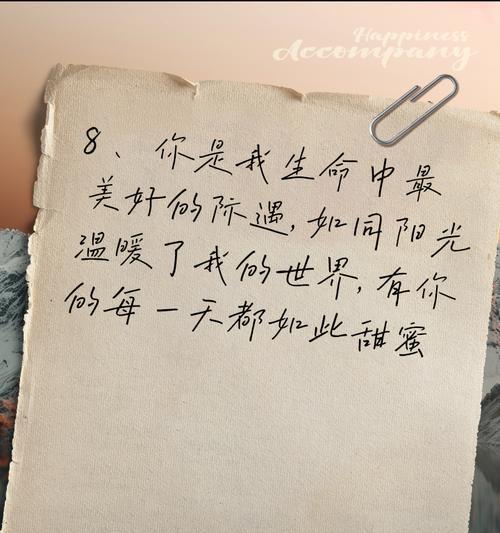 Happiness
Accompany
8、你是我生命中最
美好的际遇,如同阳光
温暖了我的世界,有你
的每一天都如此甜蜜